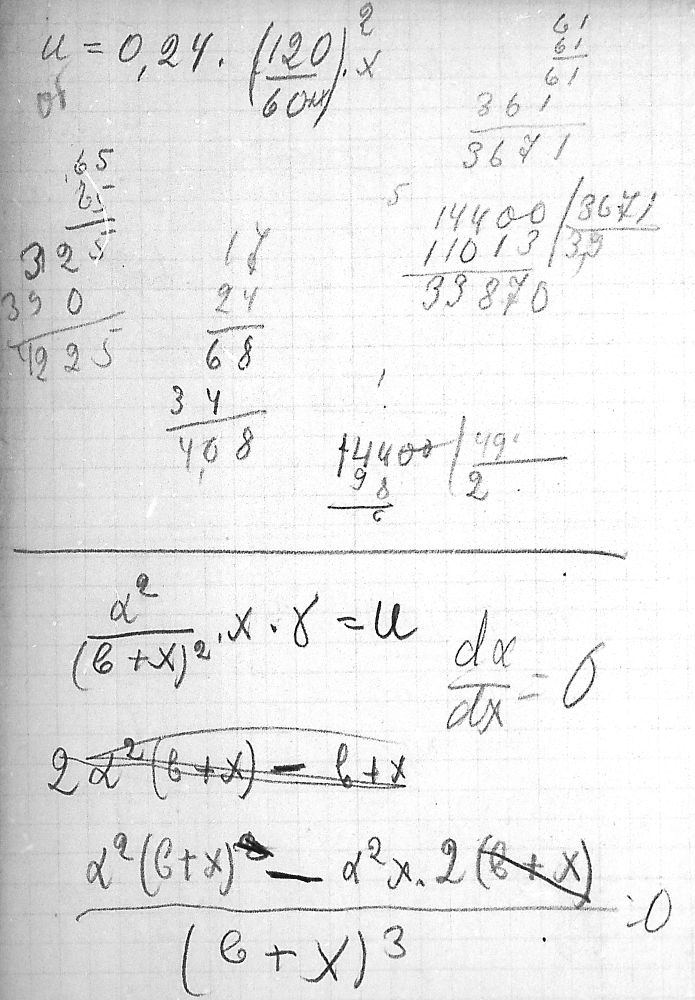 u = 0,24 · (120/60+x)² · x
61
61
61
361
3671
65
65
325
390
4225
17
24
68
34
4,08
5
14400 | 3671
11013 | 3,9
33870
14400 | 49
98 | 2
α²/(b+x)² · x · γ = u
dx/dx = 0
2α²(b+x) − b+x
α²(b+x)² − α²x · 2(b+x)
(b+x)³
=0